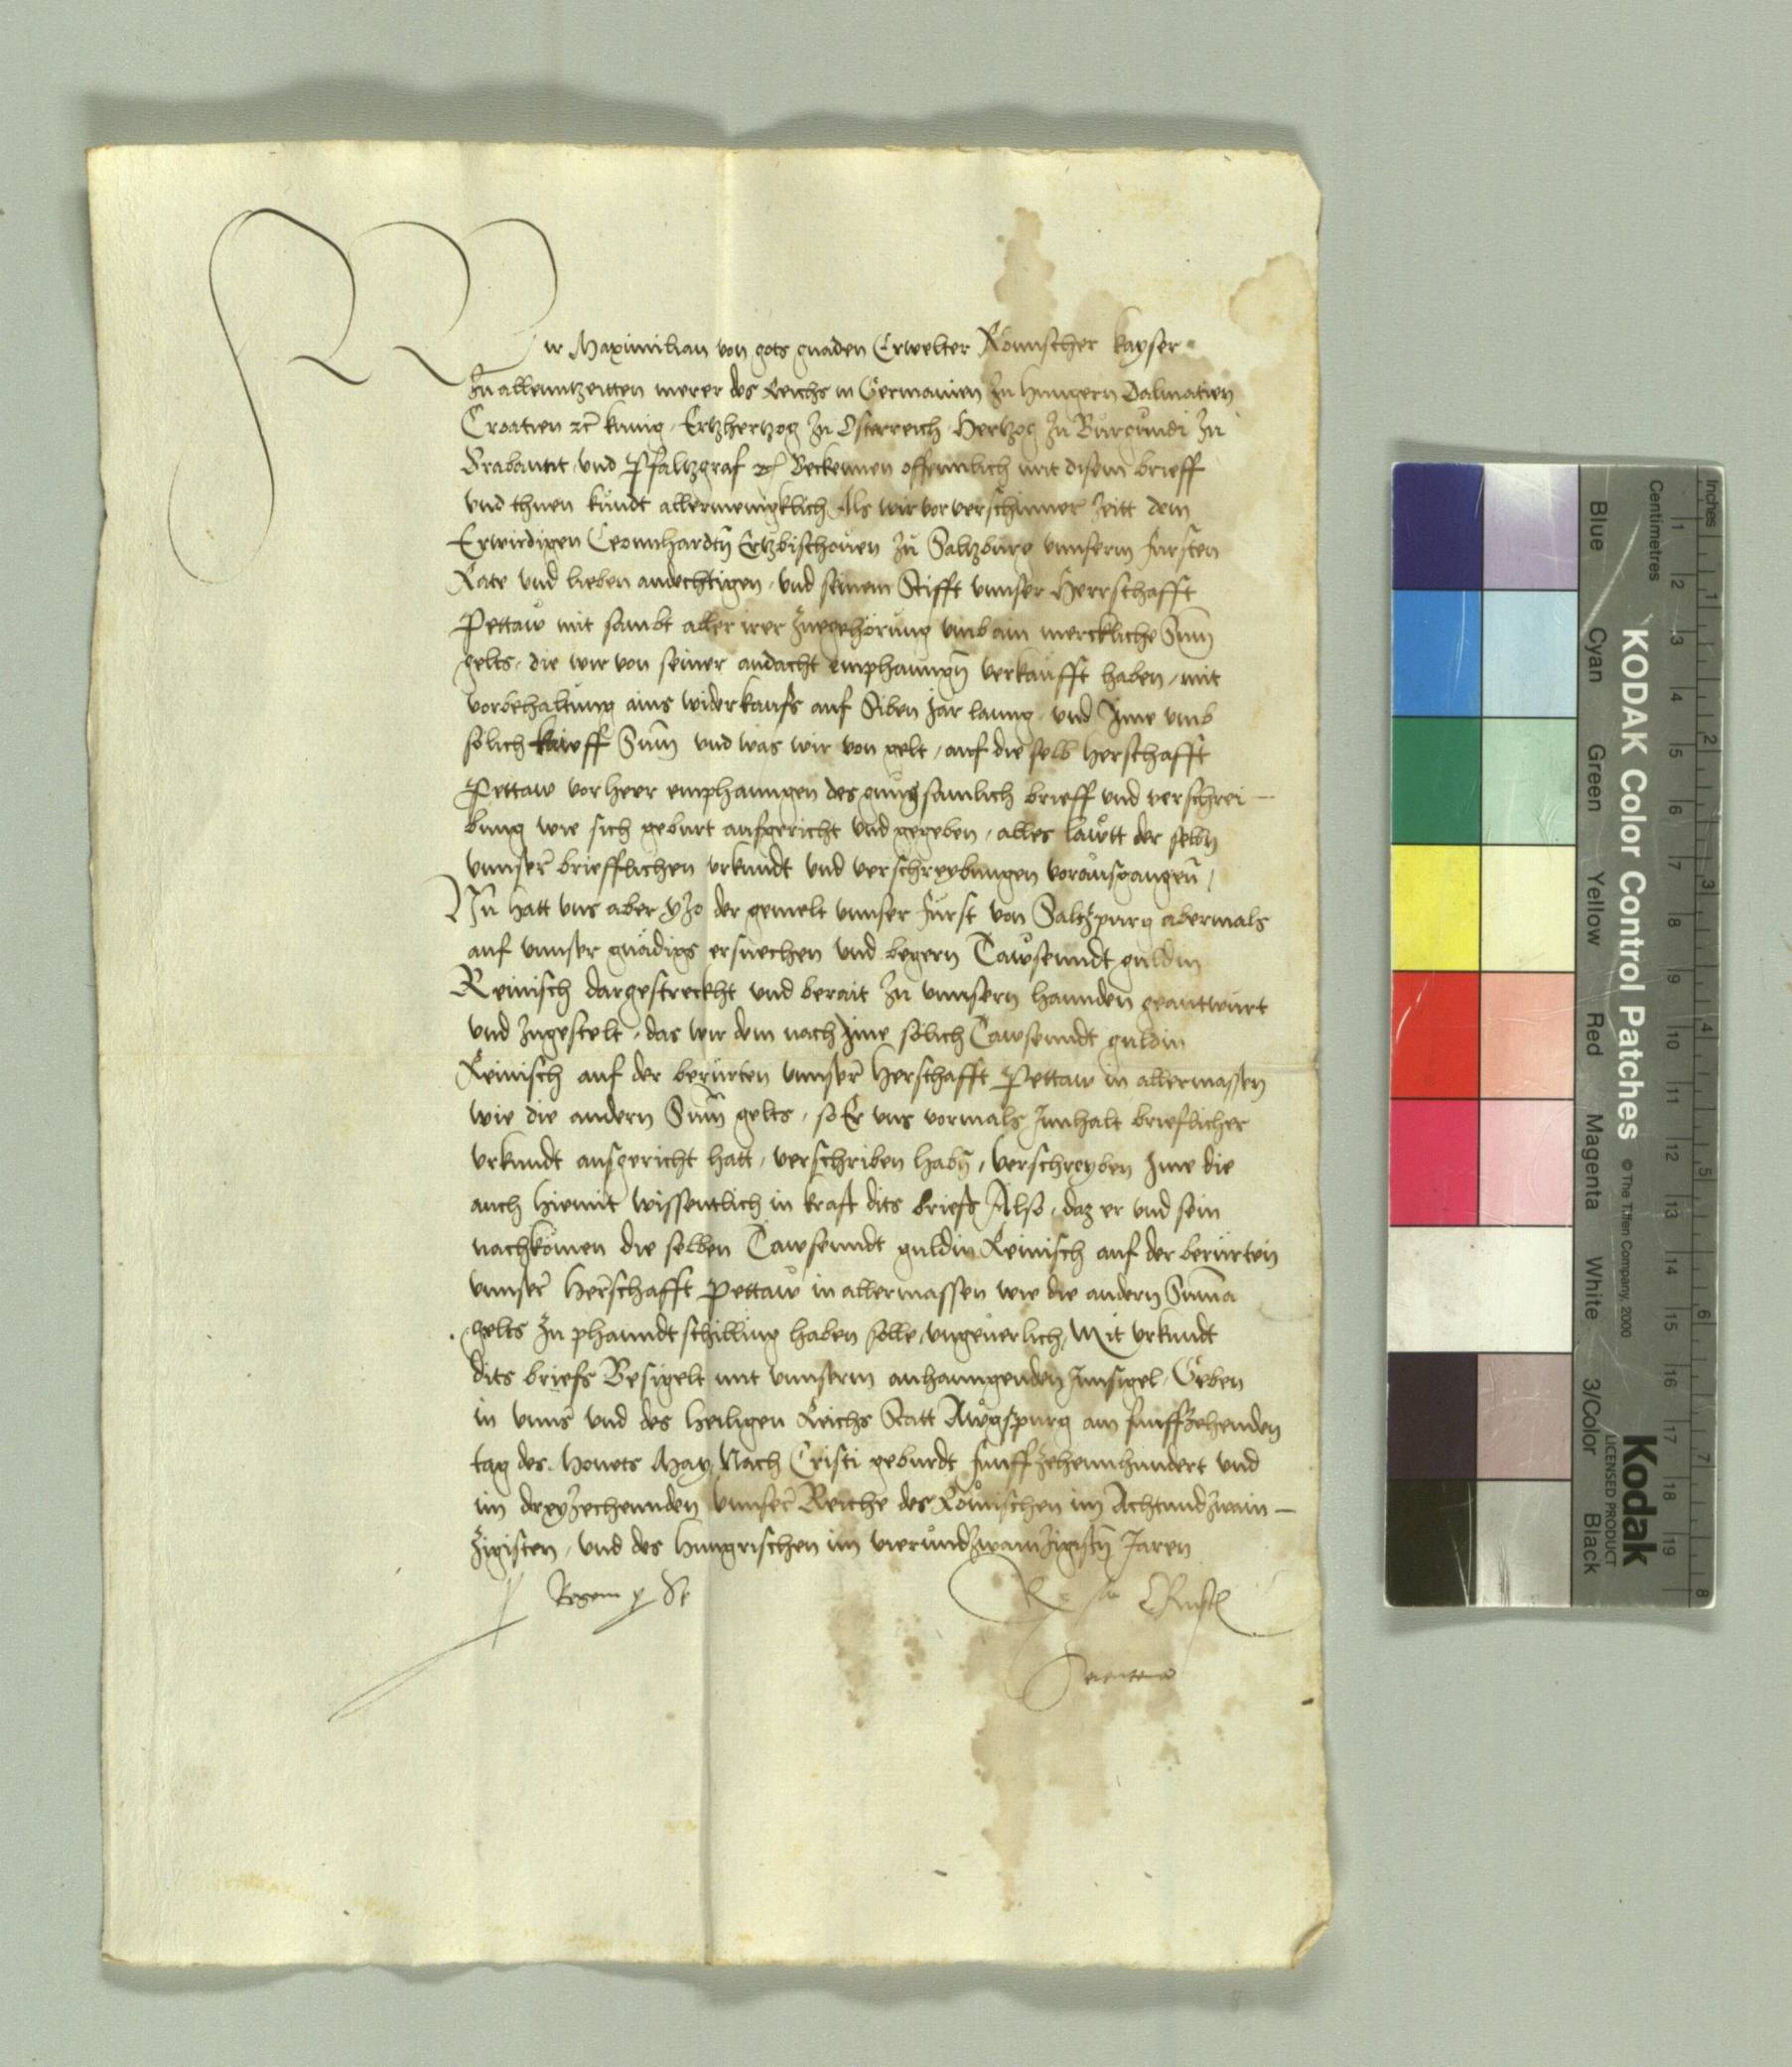 Wir Maximilian von gots gnaden Erwelter Romischer kayser
Zu allenntzeitten merer des Reichs in Germanien zu Hungern Dalmatien
Croatien etc kunig Ertzhertzog zu Osterreich Hertzog zu Burgundi zu
Brabannt und Pfaltzgraf etc Beckennen offennlich mit disem brieff
und thuen kundt allermenigklich Als wir vor verschinner zeitt dem
Erwirdigen Leonnhardtn Ertzbischoven zu Saltzburg unnserm fursten
Rate und lieben andechtigen und seinem Stifft unnser Herrschafft
Pettaw mit sambt aller irer zuegehorung umb ain merckliche Sum
gelts die wir von seiner andacht emphanngn verkaufft haben mit
vorbehaltung ains widerkaufs auf Siben jar lanng und Ime umb
solich kawff Sum und was wir von gelt auf die selb Herschafft
Pettaw vorherr emphanngen des gnugsamlich brieff und verschrei-
bung wie sich geburt aufgericht und gegeben alles lawtt der selbn
unnser briefflichen urkundt und verschreybungen vorausgangen
Nu hatt uns aber yzo der gemelt unnser furst von Saltzpurg abermals
auf unnser gnädigs ersuechen und begern Tawsenndt guldin
Reinisch dargestreckht und berait zu unnsern hannden geantwurt
und zugestelt das wir dem nach ime solich Tawsenndt guldin
Reinisch auf der berurten unnser Herschafft Pettaw in allermassen
wie die andern Sum gelts so Er uns vormals Innhalt brieflicher
urkundt ausgericht hatt verschriben habn verschreyben Ime die
auch hiemit wissentlich in kraft dits briefs Also daz er und sein
nachkomen die selben Tawsenndt guldin Reinisch auf der berurten
unnser Herschafft Pettaw in allermassen wie die andern Summa
gelts zu phanndt schilling haben solle ungeverlich Mit urkundt
dits briefs Besigelt mit unnserm anhanngenden Innsigel Geben
in unnser und des heiligen Reichs Statt Awgspurg am funffzehenden
tag des Monets May Nach Cristi geburdt funffzehennhundert und
im dreyzechennden unnser Reiche des Romischen im Achtundzwain-
zigisten und des Hungrischen im vierundzwainzigistn Jaren
KODAK Color Control Patches © The Tiffen Company, 2000
Kodak
LICENSED PRODUCT
Inches 1 2 3 4 5 6 7 8
Centimetres 1 2 3 4 5 6 7 8 9 10 11 12 13 14 15 16 17 18 19
Blue Cyan Green Yellow Red Magenta White 3/Color Black